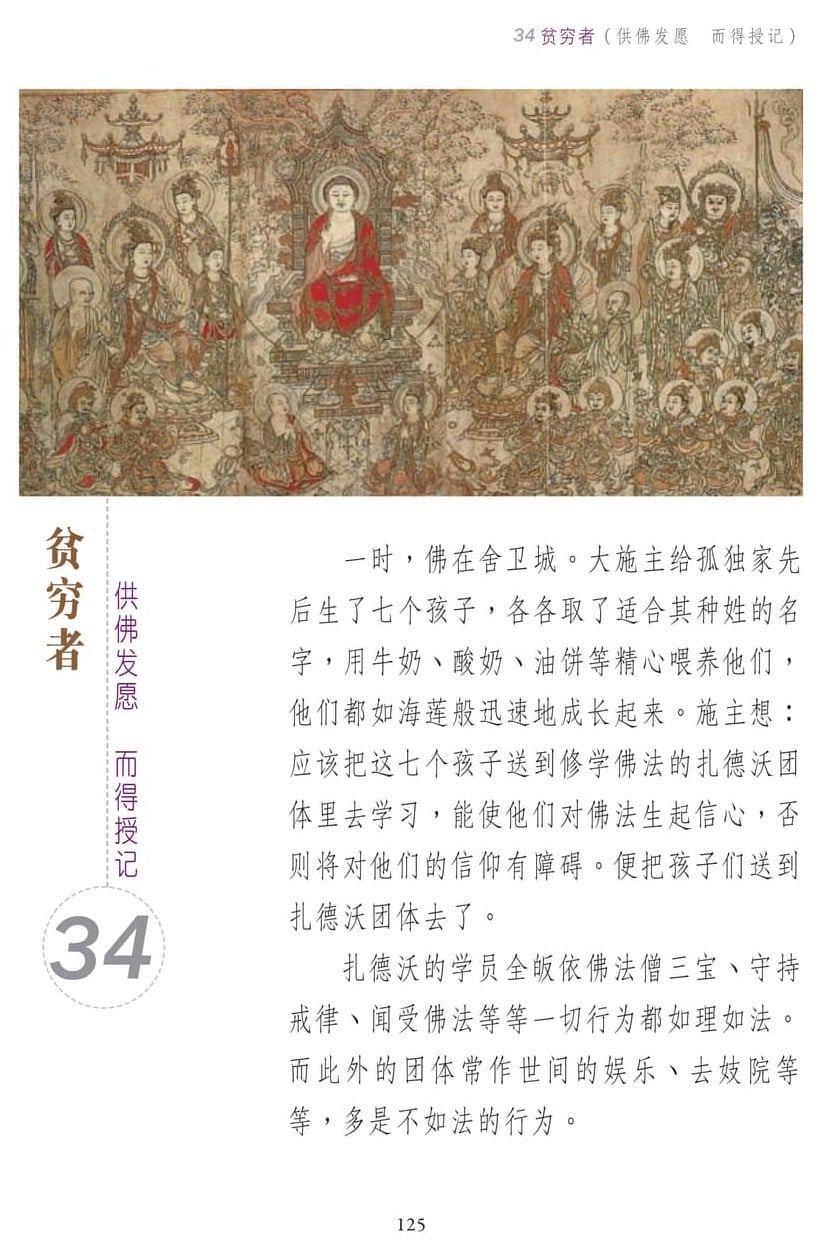 34 贫穷者（供佛发愿　而得授记）
贫穷者
供佛发愿　而得授记
34
一时，佛在舍卫城。大施主给孤独家先
后生了七个孩子，各各取了适合其种姓的名
字，用牛奶、酸奶、油饼等精心喂养他们，
他们都如海莲般迅速地成长起来。施主想：
应该把这七个孩子送到修学佛法的扎德沃团
体里去学习，能使他们对佛法生起信心，否
则将对他们的信仰有障碍。便把孩子们送到
扎德沃团体去了。
扎德沃的学员全皈依佛法僧三宝、守持
戒律、闻受佛法等等一切行为都如理如法。
而此外的团体常作世间的娱乐、去妓院等
等，多是不如法的行为。
125